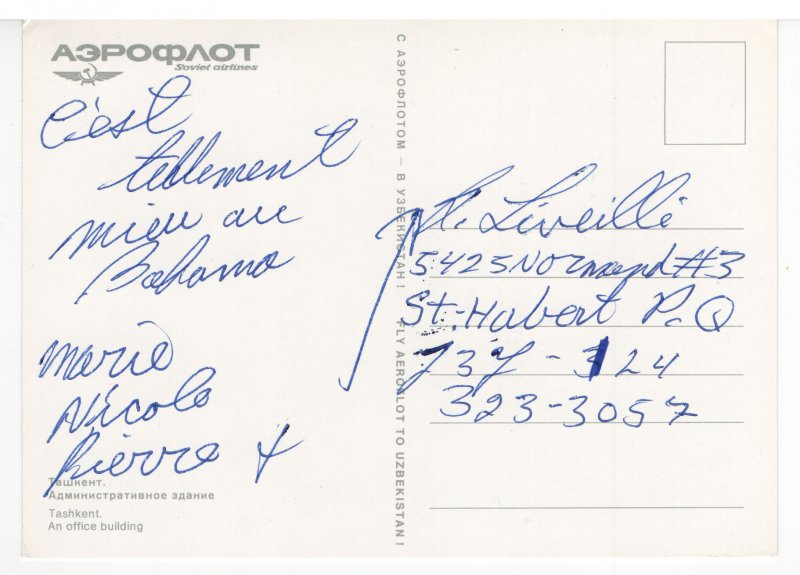 АЭРОФЛОТ
Soviet airlines
C'est
tellement
mieu au
Bahama
Marie
Nicole
Pierre X
Ташкент.
Административное здание
Tashkent.
An office building
С АЭРОФЛОТОМ — В УЗБЕКИСТАН! FLY AEROFLOT TO UZBEKISTAN!
Liveillé
5425 Normand #3
St-Hubert P.Q
J3Y-124
323-3057